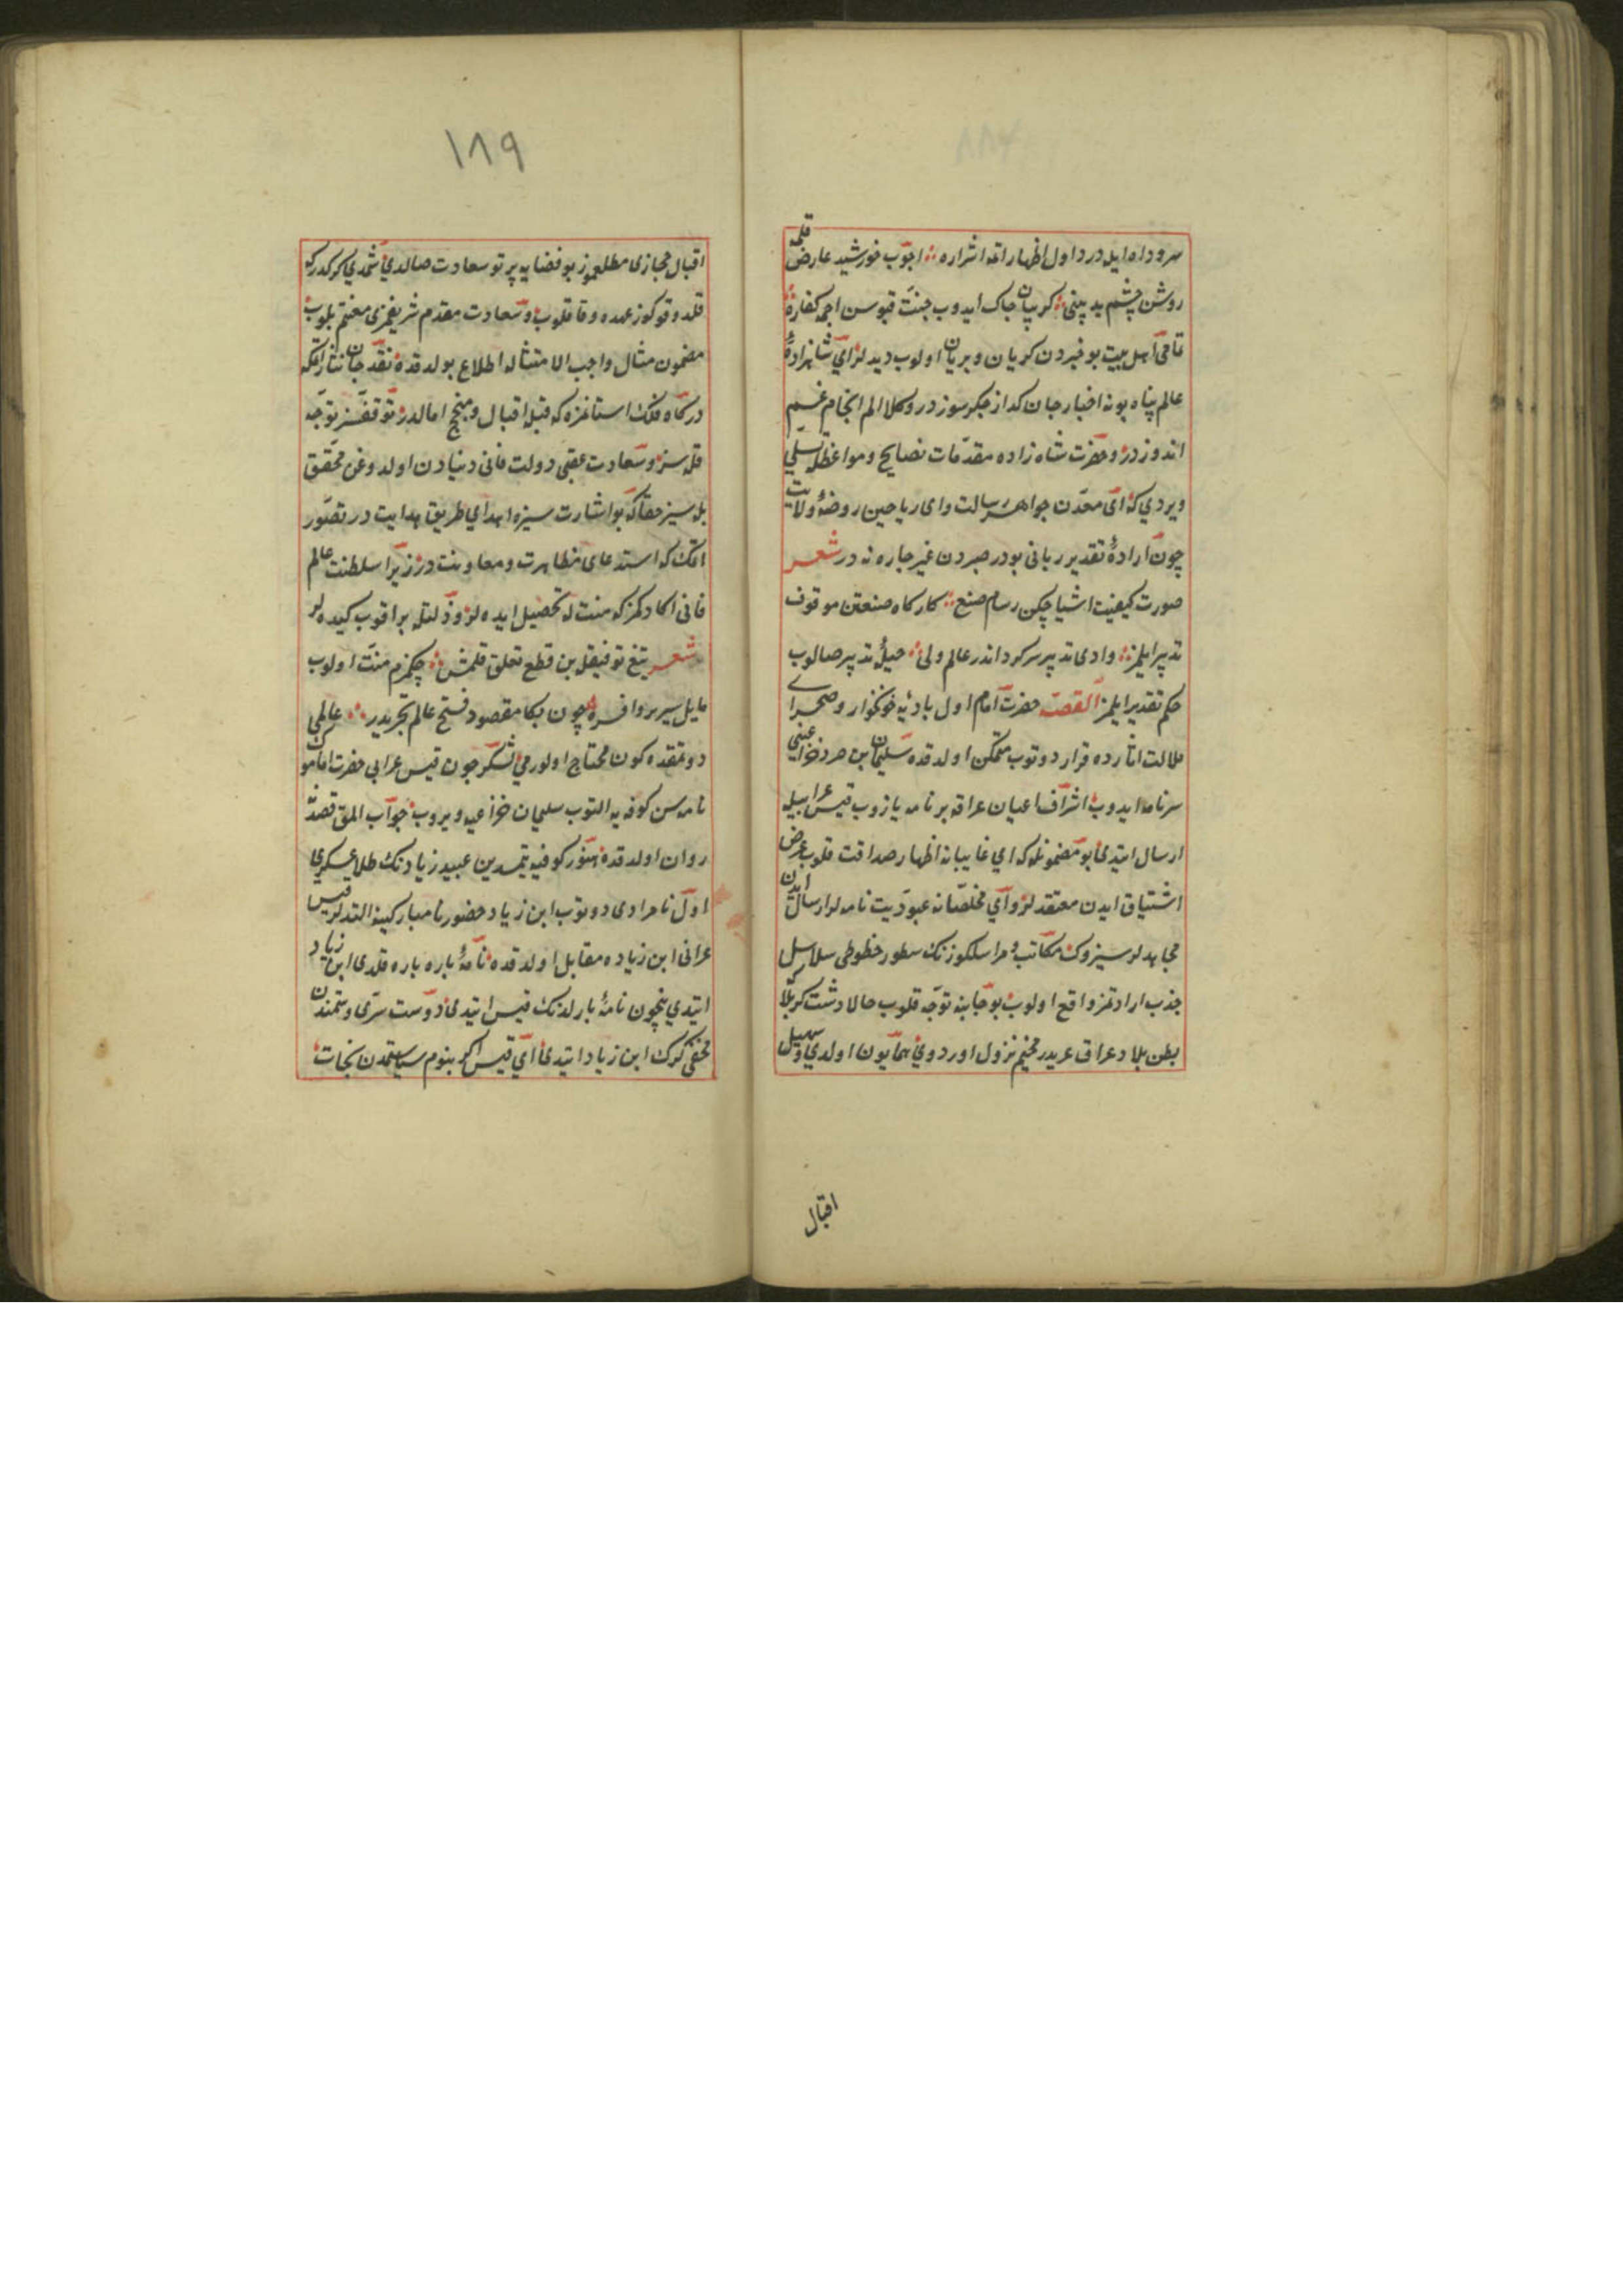 سرو داه ایله درد اول اظهار اتمه اشراره اچوب خورشید عارض قلمه
روشن چشم بد بینی کریبان چاک ایدوب جنت قپوسن اچمه کفاره
تمامی اهل بیت بو خبردن کریان و بریان اولوب دیدیلر ای شاهزادهٔ
عالم پناه بو نه اخبار جان کداز جکر سوزدر و کلام الم انجام غم
اندوزدر و حضرت شاه زاده مقدمات نصایح و مواعظله تسلی
ویردی که ای معدن جواهر رسالت و ای ریاحین روضهٔ ولایت
چون ارادهٔ تقدیر ربانی بودر صبردن غیر چاره نه در شعر
صورت کیفیت اشیا چکن رسام صنع کارکاه صنعتن موقوف
تدبیر ایلمز وادی تدبیر سرکرداندر عالم ولی حیلهٔ تدبیر صالوب
حکم تقدیر ایلمز القصه حضرت امام اول بادیهٔ خونخوار و صحرای
ملالت اثارده قرار دوتوب متمکن اولدقده سلیمان بن صرد خزاعینی
سرنامه ایدوب اشراف اعیان عراقه بر نامه یازوب قیس عرابیله
ارسال ایتدی بو مضمونله که ای غایبانه اظهار صداقت قلوب عرض
اشتیاق ایدن معتقدلر و ای مخلصانه عبودیت نامه لر ارسال ایدن
مجاهدلر سیزوک مکاتب و مراسلکوزنک سطور خطوطی سلاسل
جذب ارادتمز واقع اولوب بو جانبه توجه قلوب حالا دشت کربلا
بطن بلاد عراق عربدر مخیم نزول اوردوی همایون اولدی و سهیل
اقبال
١٨٩
اقبال حجازی مطلعموز بو فضایه پرتو سعادت صالدی شمدی کرکدرکه
قلدوقوکوز عهده وفا قلوب و سعادت مقدم شریفمزی مغتنم بلوب
مضمون مثال واجب الامتثاله اطلاع بولدقده نقد جان نثار اتمکه
درکاه فلک استانمزه که قبلهٔ اقبال و منجح امالدر توقفسز توجه
قله سز و سعادت عقبی دولت فانی دنیادن اولدوغن محقق
بله سیز حقا که بو اشارت سیزه اهدای طریق هدایت در تصور
اتمک که استدعای مظاهرت و معاونت در زیرا سلطنت عالم
فانی اکا دکمز که منتله تحصیل ایده لر و ذلتله براقوب کیده لر
شعر تیغ توفیقله بن قطع تعلق قلمشم چکمزم منت اولوب
مایل سریر و افسره چون بکا مقصود فتح عالم تجریدر عالمی
دوتمقده کون محتاج اولورمی لشکر چون قیس عرابی حضرت امامک
نامه سن کوفه یه التوب سلیمان خزاعیه ویروب جواب المق قصدنه
روان اولدقده هنوز کوفیه یتمدین عبید زیادنک طلایه عسکری
اول نامرادی دوتوب ابن زیاد حضور نامبارکینه التدیلر قیس
عرانی ابن زیاده مقابل اولدقده نامهٔ پاره پاره قلدی ابن زیاد
ایتدی نیچون نامهٔ پارلدنک قیس ایتدی دوست سرّی دشمندن
مخفی کرک ابن زیاد ایتدی ای قیس اکر بنوم سیاستمدن نجات